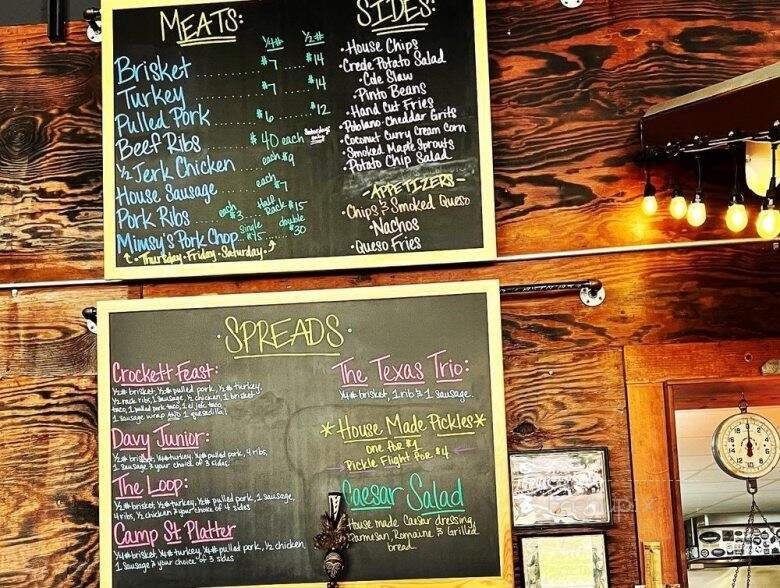 MEATS:
1/4# 1/2#
Brisket $7 $14
Turkey $7 $14
Pulled Pork $6 $12
Beef Ribs $40 each
1/2 Jerk Chicken each $9
House Sausage each $7
Pork Ribs each $3 Half Rack $15
Mimsy's Pork Chop single $15 double $30
Thursday·Friday·Saturday·
SIDES:
·House Chips
·Crede Potato Salad
·Cole Slaw
·Pinto Beans
·Hand Cut Fries
·Poblano-Cheddar Grits
·Coconut Curry Cream Corn
·Smoked Maple Sprouts
·Potato Chip Salad
·APPETIZERS·
·Chips & Smoked Queso
·Nachos
·Queso Fries
·SPREADS·
Crockett Feast:
1/2# brisket, 1/2# pulled pork, 1/2# turkey,
1/2 rack ribs, 1 sausage, 1/2 chicken, 1 brisket
taco, 1 pulled pork taco, 1 el jefe taco
1 sausage wrap AND 1 quesadilla!
Davy Junior:
1/2# brisket, 1/4# turkey, 1/4# pulled pork, 4 ribs,
1 sausage & your choice of 3 sides
The Loop:
1/2# brisket, 1/2# turkey, 1/2# pulled pork, 1 sausage,
4 ribs, 1/2 chicken & your choice of 4 sides
Camp St Platter
1/4# brisket, 1/4# turkey, 1/4# pulled pork, 1/2 chicken
1 sausage & your choice of 3 sides
The Texas Trio:
1/4# brisket, 1 rib & 1 sausage.
*House Made Pickles*
one for $1
Pickle Flight For $4
Caesar Salad
House made Caesar dressing,
Parmesan, Romaine & Grilled
bread.